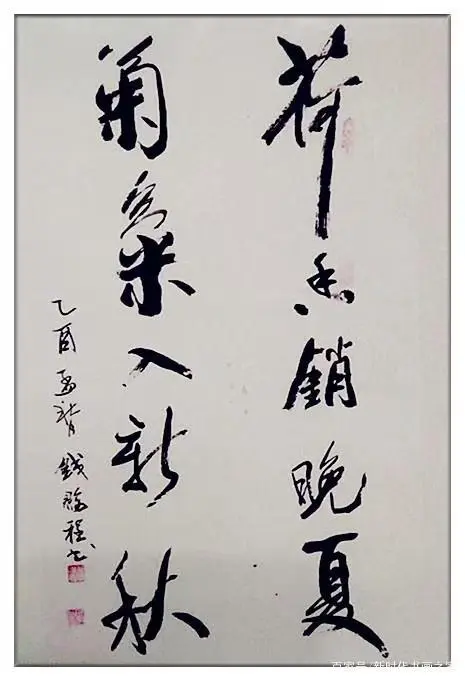 荷香銷晚夏
菊氣入新秋
乙酉 錢鵬程书
百家号/新时代书画之家